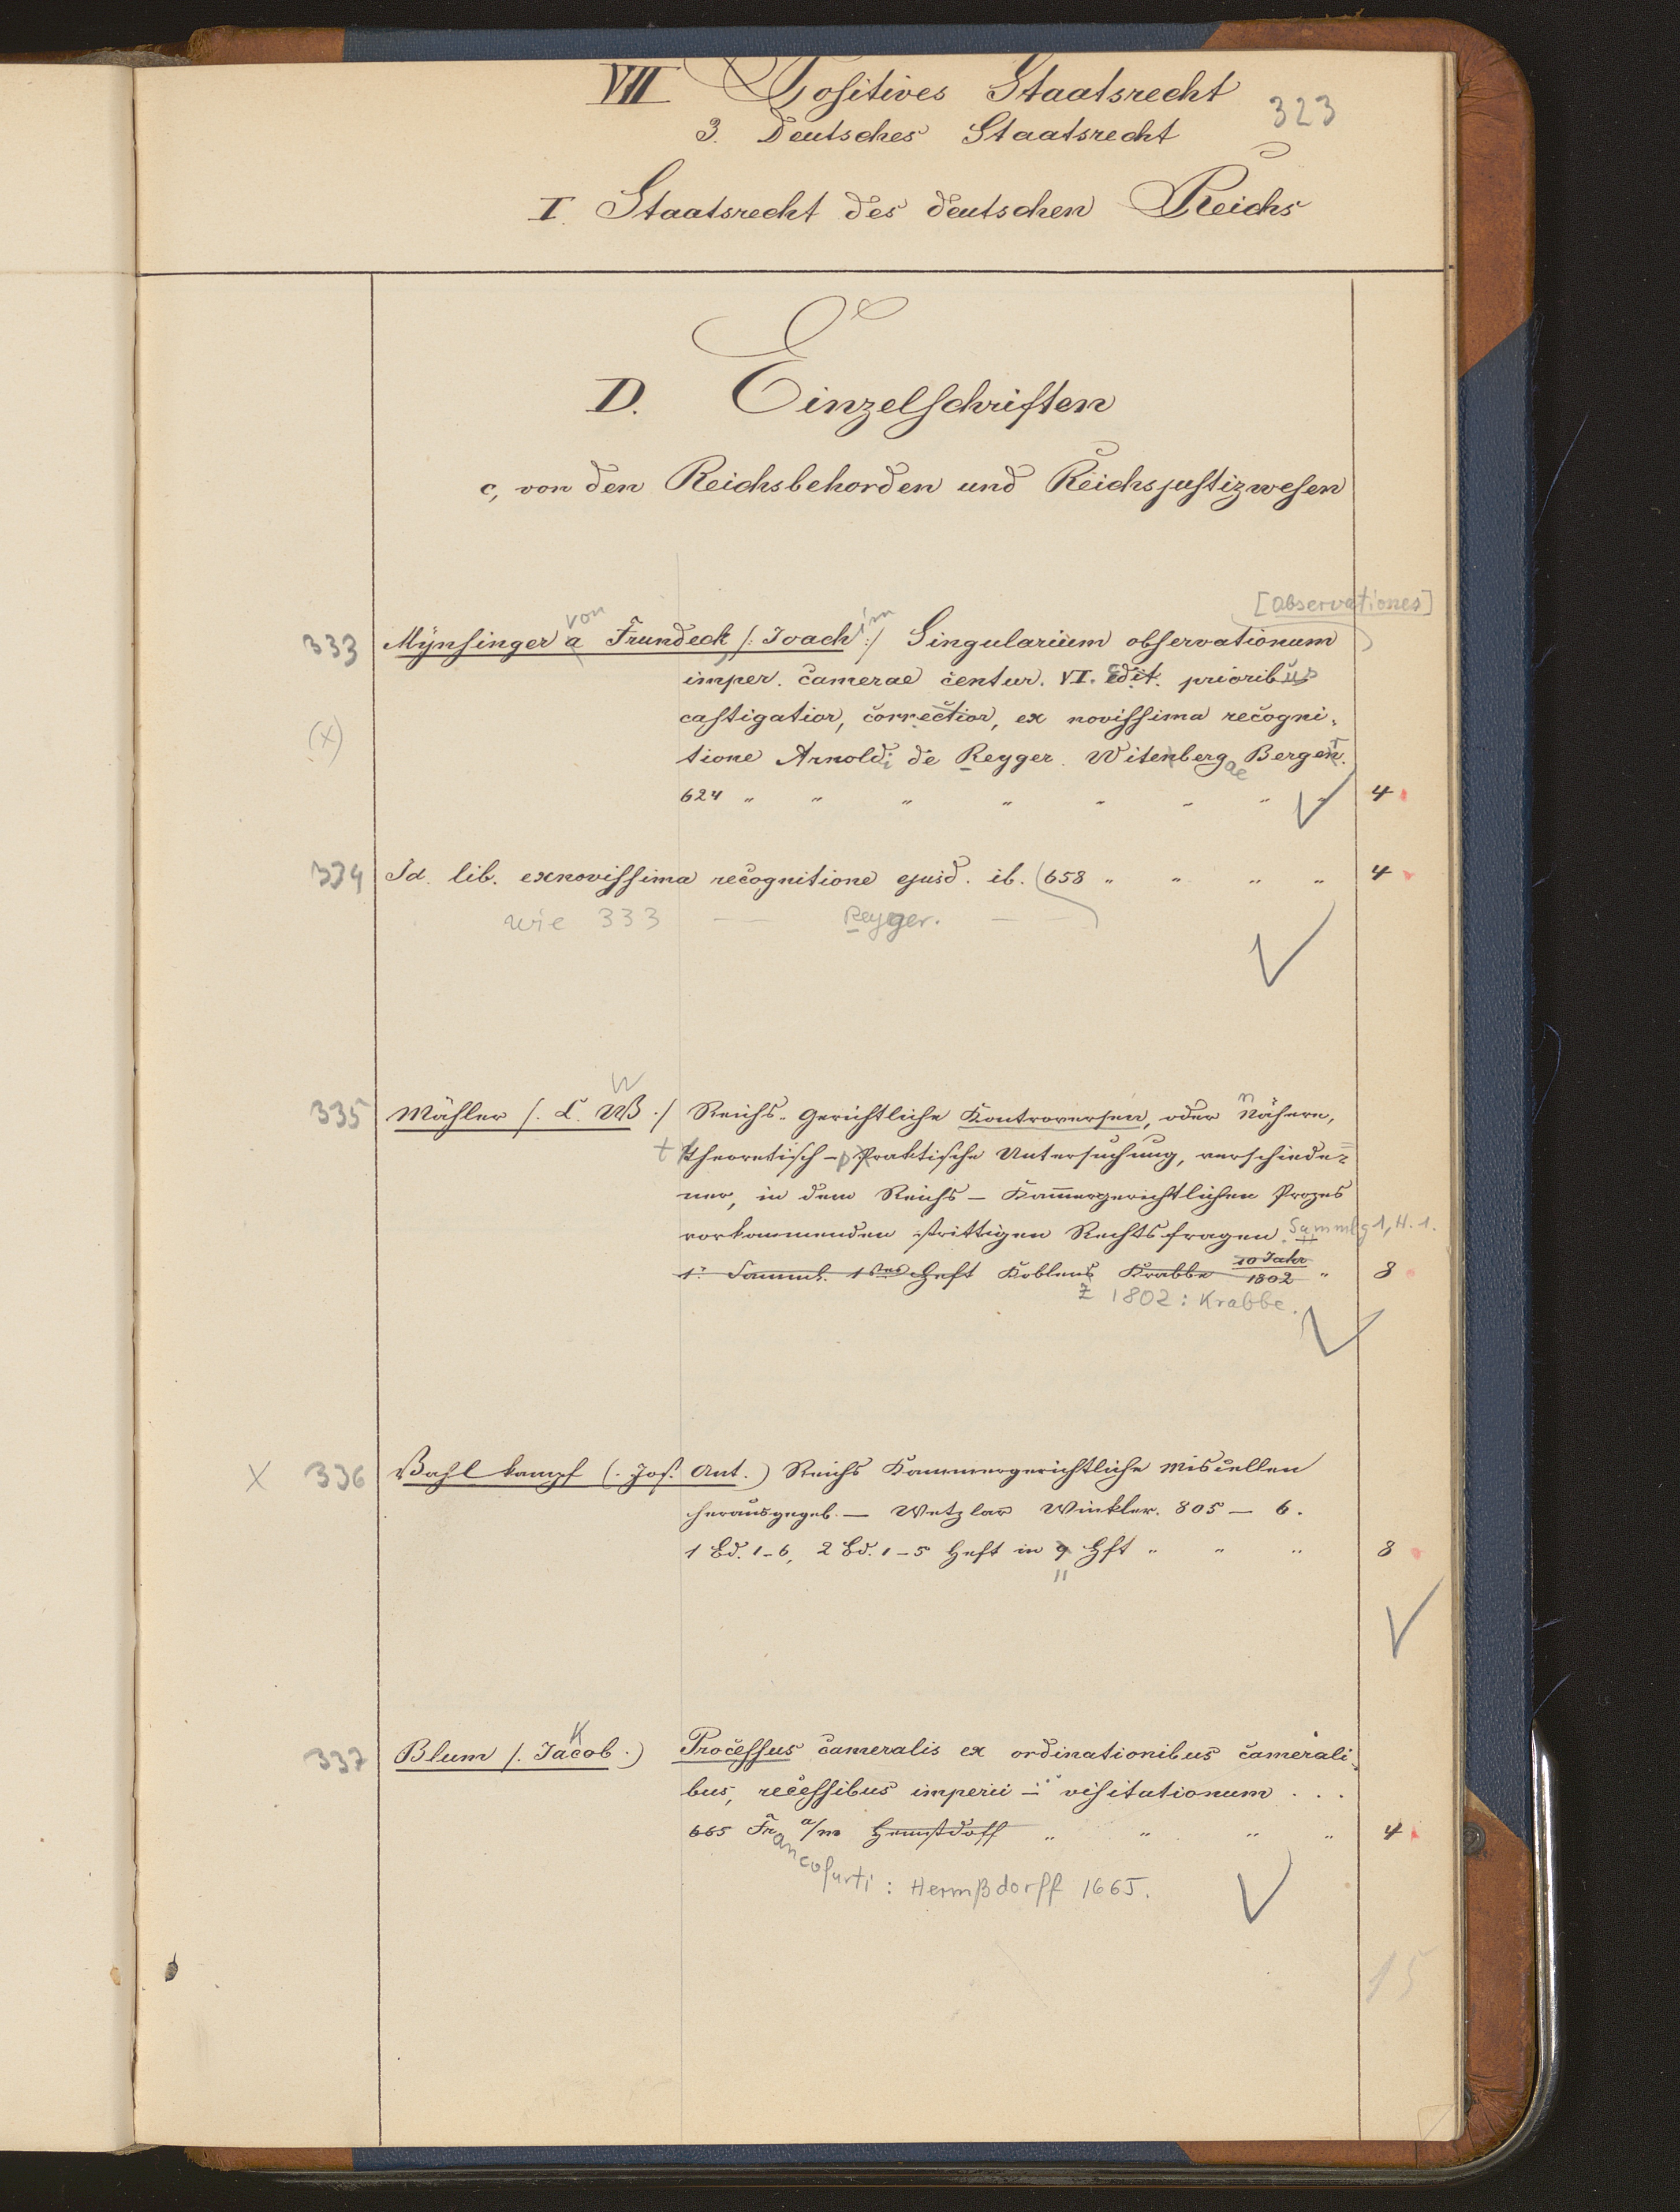 VII Positives Staatsrecht
323
3. Deutsches Staatsrecht
I. Staatsrecht des deutschen Reichs
D. Einzelschriften
c, von den Reichsbehorden und Reichsjustizwesen
[observationes]
von im
333 Mÿnsinger a Frundeck /: Joach :/ Singularium observationum
imper. camerae centur. VI. edit. prioribus
castigatior, correctior, ex novissima recogni-
(x)
tione Arnoldi de Reyger. Witenbergae Berger.
624 " " " " " " " " 4
334 Id. lib. ex novissima recognitione ejusd. ib. (658 " " " " 4
wie 333 — — Reyger. — —
W
335 Mähler /. L. W ./ Reichs-Gerichtliche Kontroversen, oder Nähere, n
t theoretisch-praktische Untersuchung, verschiede=
ner, in dem Reichs-Kam̅ergerichtlichen Prozes
vorkommenden strittigen Rechtsfragen. Sammlg 1, H. 1.
1. Samml. 1stes Heft Koblens Krabbe 10 Jahr 1802 " 8
z 1802: Krabbe.
X 336 Vahlkampf (. Jos. Ant.) Reichs Kammergerichtliche Miscellen
herausgegeb. — Wetzlar Winkler. 805 — 6.
1 Bd. 1-6, 2 Bd. 1-5 Heft in 9 Hft " " " 8
11
K
337 Blum /. Jacob .) Processus cameralis ex ordinationibus camerali-
bus, recessibus imperii — visitationum . . .
665 Fr a/m Hermsdorff " " " " 4
ancofurti: Hermßdorff 1665.
15